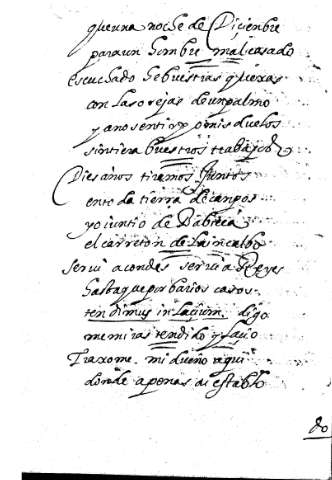 que una noche de Diçiembre
para un hombre mal casado
escuchado he buestras quexas
con las orejas de un palmo
y a no sentir yo mis duelos
sintiera buestros trabajos
Dies años tiramos juntos
en la tierra de campos
yo juntto de Babieca
el carreton de Lain calbo
serui a condes serui a Reyes
hasta que por barios casos
tendimus in laçium digo
me miras tendido y laçio
Traxome mi dueño aqui
donde apenas ai establo
do